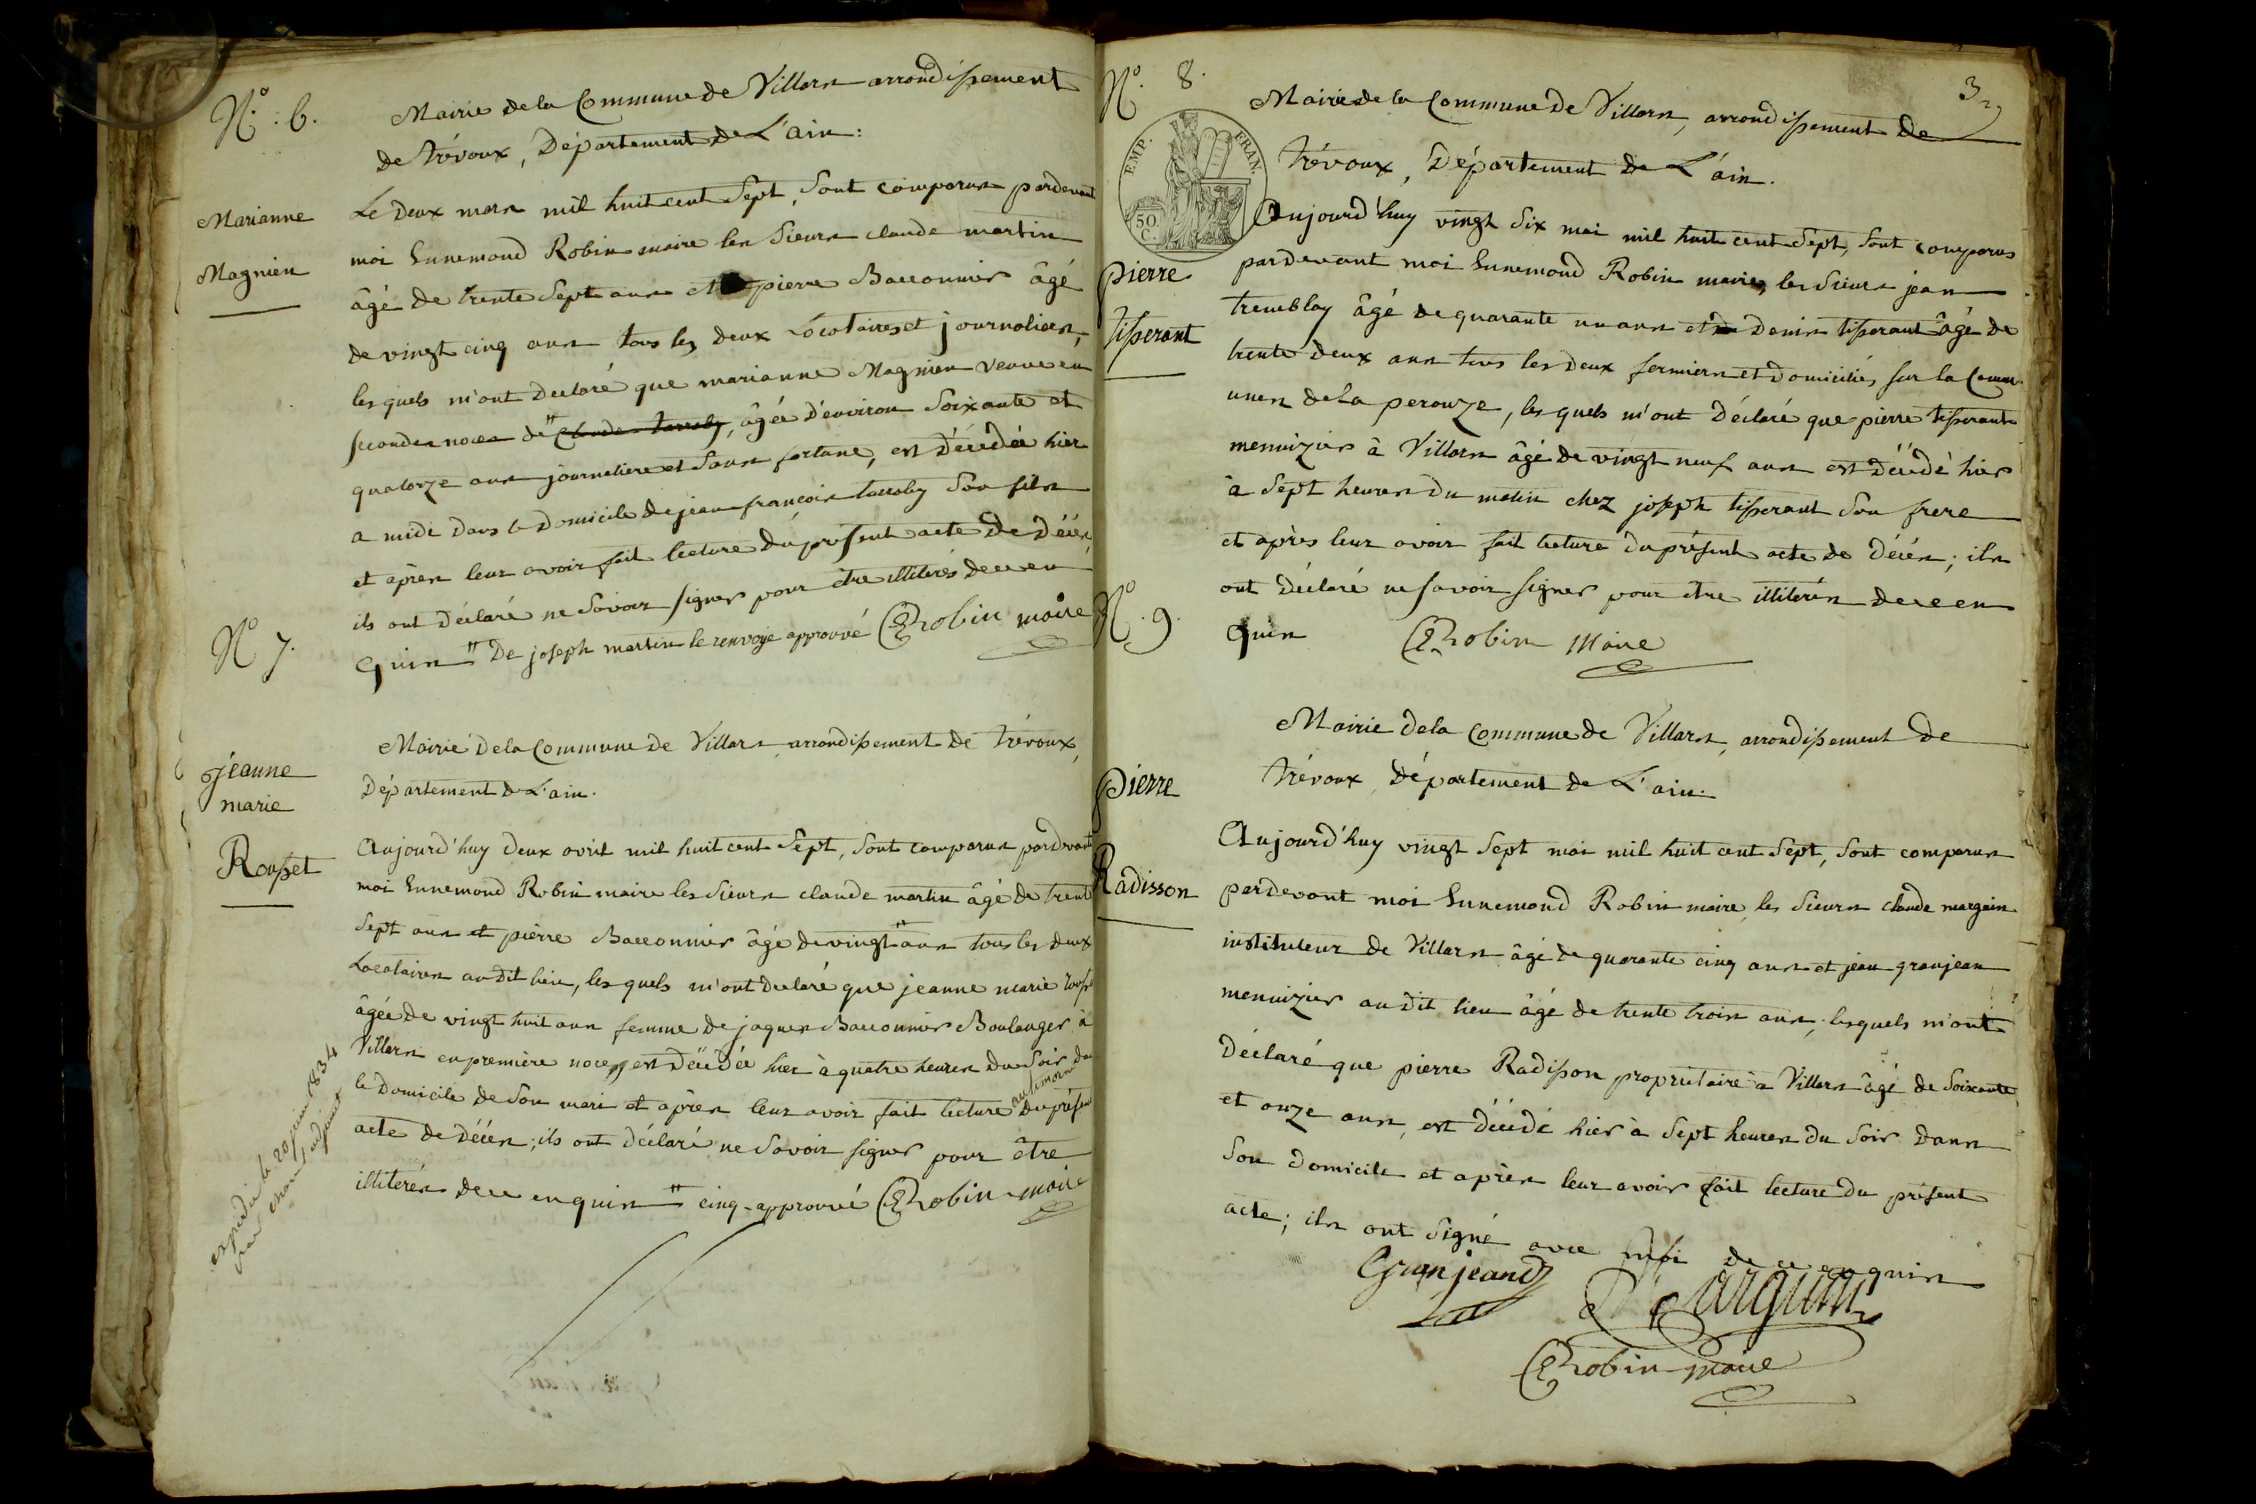 N.° : 6.
Mairie de la Commune de Villars arrondissement
de trévoux, Département de L'ain :
Marianne
Magnien
Le deux mars mil huit cent Sept, sont comparus pardevant
moi Ennemond Robin maire les Sieurs claude martin
âgé de trente Sept ans et pierre Baconnier âgé
de vingt cinq ans tous les deux Locotaires et journaliers,
les quels m'ont declaré que marianne Magnien veuve en
secondes noces de " Claude , âgée d'environ Soixante et
quatorze ans journaliere et Sans fortune, est décédée hier
a midi dans le Domicile de jean francois Son fils
et après leur avoir fait lecture du présent acte de Décès,
ils ont déclaré ne Savoir signer pour être illiterés de ce en
quis " De joseph martin le renvoye approuvé ERobin maire
N.° 7.
Mairie de la Commune de Villars arrondissement de trévoux,
Département de L'ain.
jeanne
marie
Rousset
Aujourd'huy deux avril mil huit cent Sept, Sont comparus pardevant
moi Ennemond Robin maire les Sieurs claude martin âgé de trente
Sept ans et pierre Baconnier âgé de vingt " ans tous les deux
Locataires au dit lieu, les quels m'ont declaré que jeanne marie
âgée de vingt huit ans femme de jaques Baconnier Boulanger à
Villars en première noces est décédée hier à quatre heures du Soir
le domicile de Son mari et après leur avoir fait lecture du présent
acte de décès ; ils ont déclaré ne Savoir signer pour être
illiterés de ce en quis " cinq approuvé ERobin maire
expédié le 20 juin 1834
N.° 8.
3
EMP. FRAN.
50 C.
Mairie de la Commune de Villars, arrondissement de
Trévoux, Département de L'ain.
pierre
tisserant
Aujourd'huy vingt Six mai mil huit cent Sept, Sont comparus
pardevant moi Ennemond Robin maire, les Sieurs jean
tremblay âgé de quarante un ans et Denis tisserant âgé de
trente deux ans tous les deux fermiers et domiciliés sur la Commu-
nes de La perouze, les quels m'ont Déclaré que pierre tisserant
menuizier à Villars âgé de vingt neuf ans est décédé hier
à Sept heures du matin chez joseph tisserant Son frere
et après leur avoir fait lecture du présent acte de décès ; ils
ont Déclaré ne savoir Signer pour être illiterés de ce en
quis ERobin Maire
N.° 9.
Mairie de la Commune de Villars, arrondissement de
Trévoux, Département de L'ain.
pierre
Radisson
Aujourd'huy vingt Sept mai mil huit cent Sept, Sont comparus
pardevant moi Ennemond Robin maire, les Sieurs claude margain
instituteur de Villars âgé de quarante cinq ans et jean granjean
menuizier au dit lieu âgé de trente trois ans, les quels m'ont
Déclaré que pierre Radisson proprietaire à Villars âgé de Soixante
et onze ans, est décédé hier à Sept heures du Soir dans
Son Domicile et après leur avoir fait lecture du présent
acte ; ils ont Signé avec moi de ce en quis
Granjean
Margain
ERobin maire